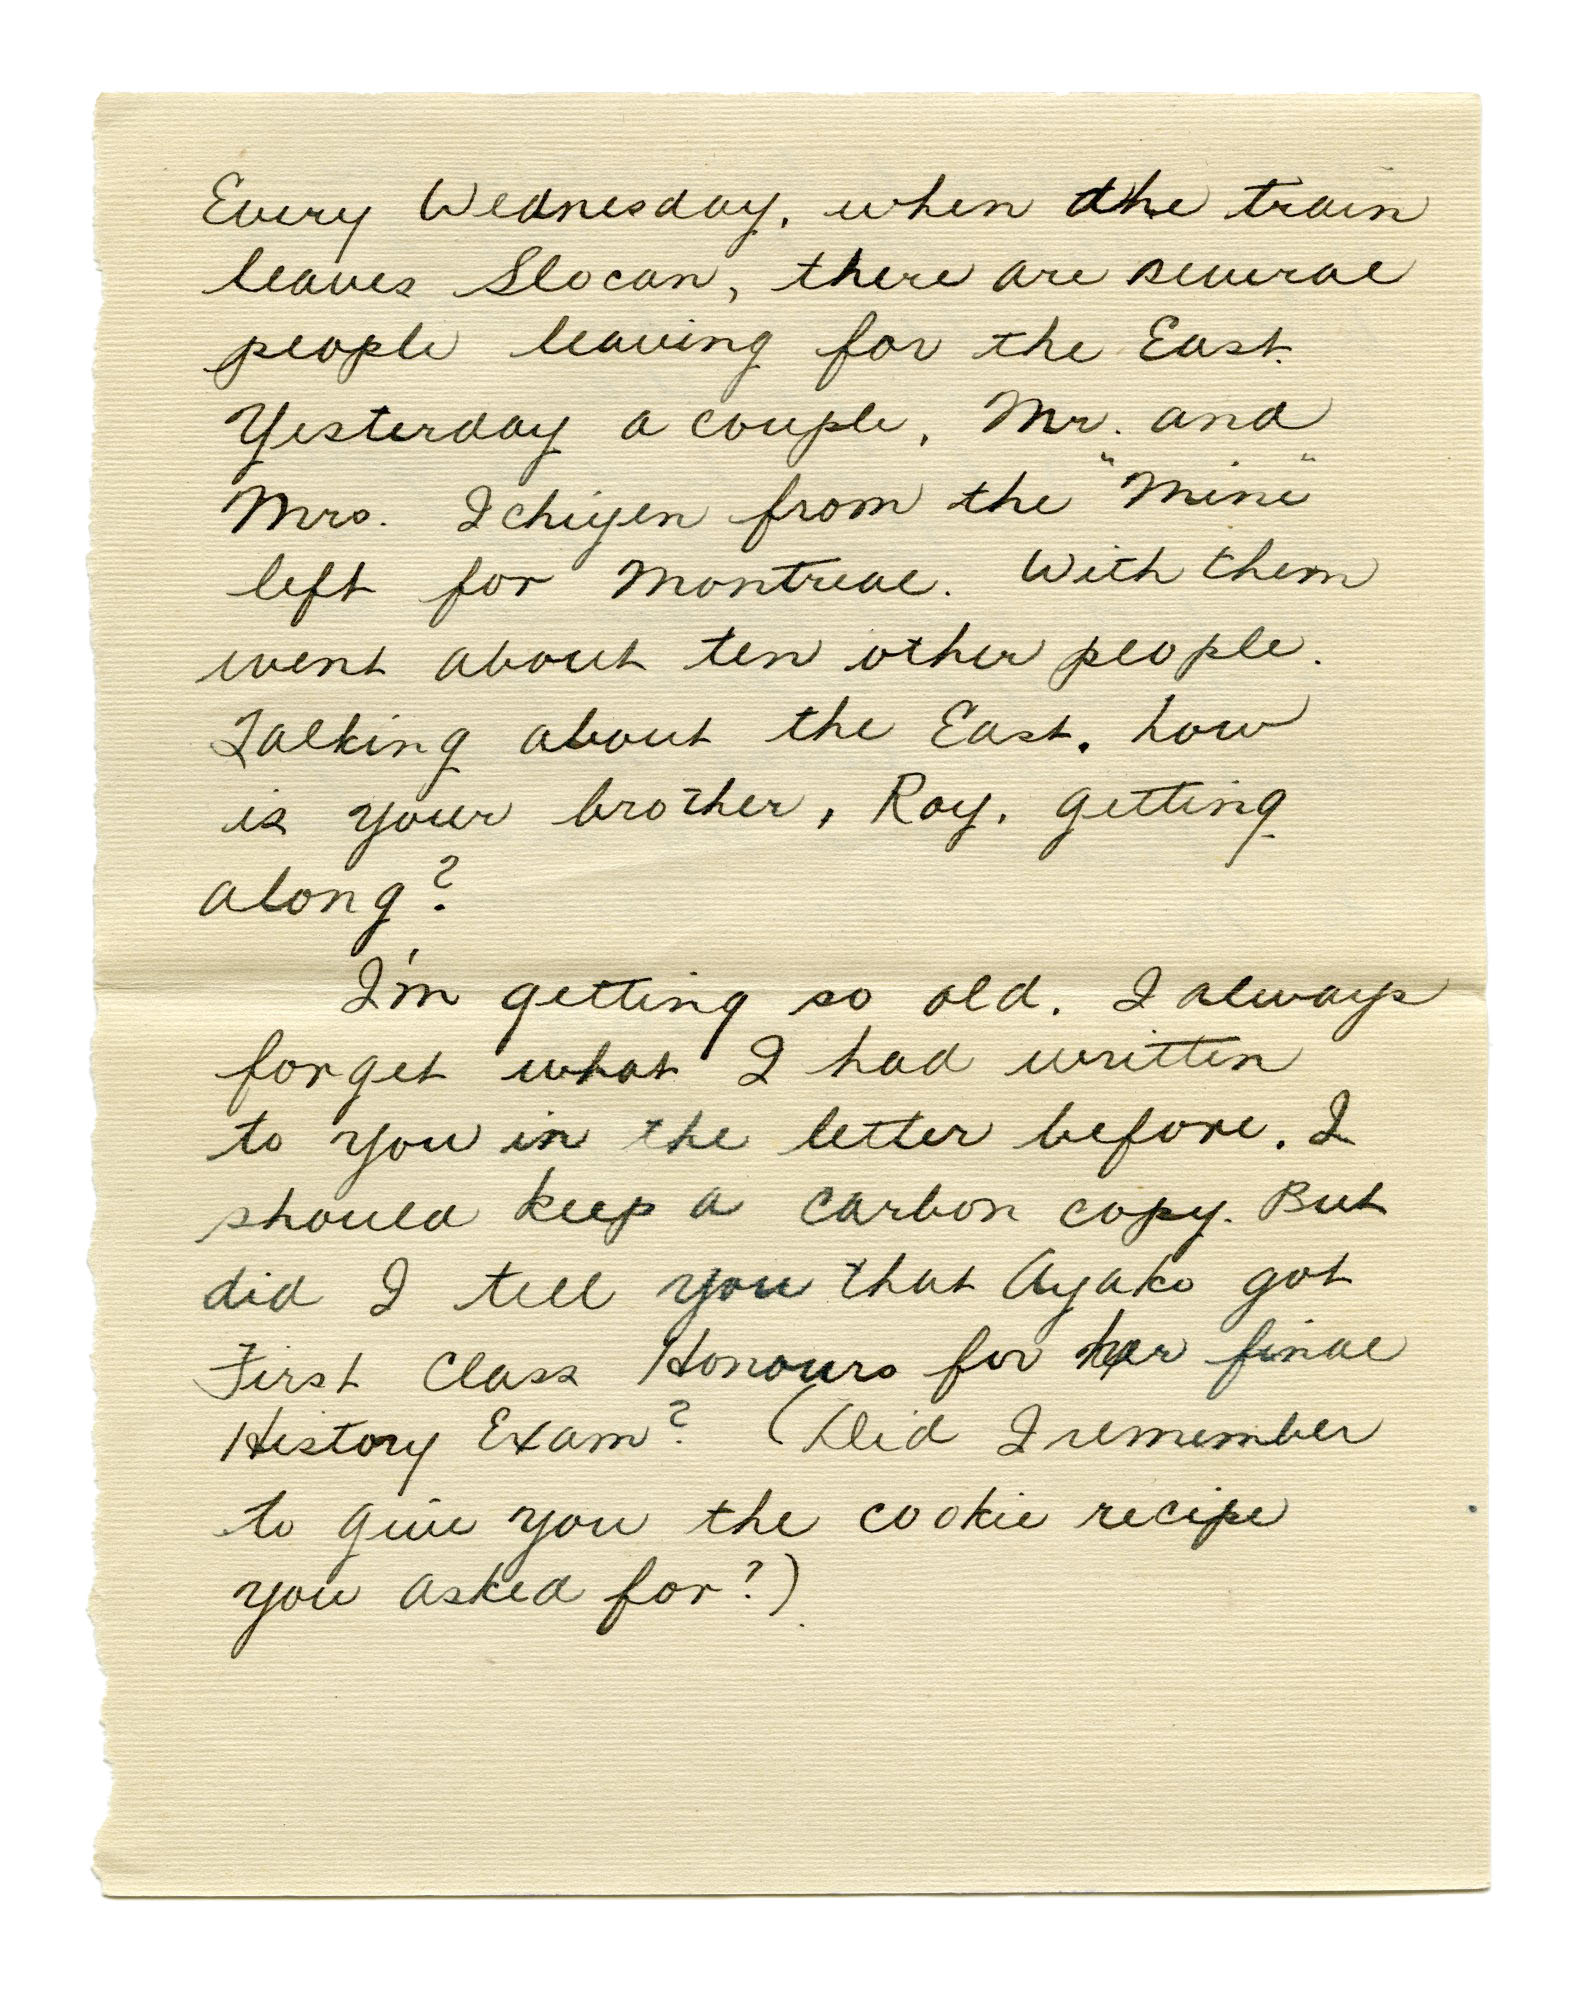 Every Wednesday, when the train
leaves Slocan, there are several
people leaving for the East.
Yesterday a couple, Mr. and
Mrs. Ichiyen from the "Mine"
left for Montreal. With them
went about ten other people.
Talking about the East, how
is your brother, Roy, getting
along?
I'm getting so old. I always
forget what I had written
to you in the letter before. I
should keep a carbon copy. But
did I tell you that Ayako got
First Class Honours for her final
History Exam? (Did I remember
to give you the cookie recipe
you asked for?)